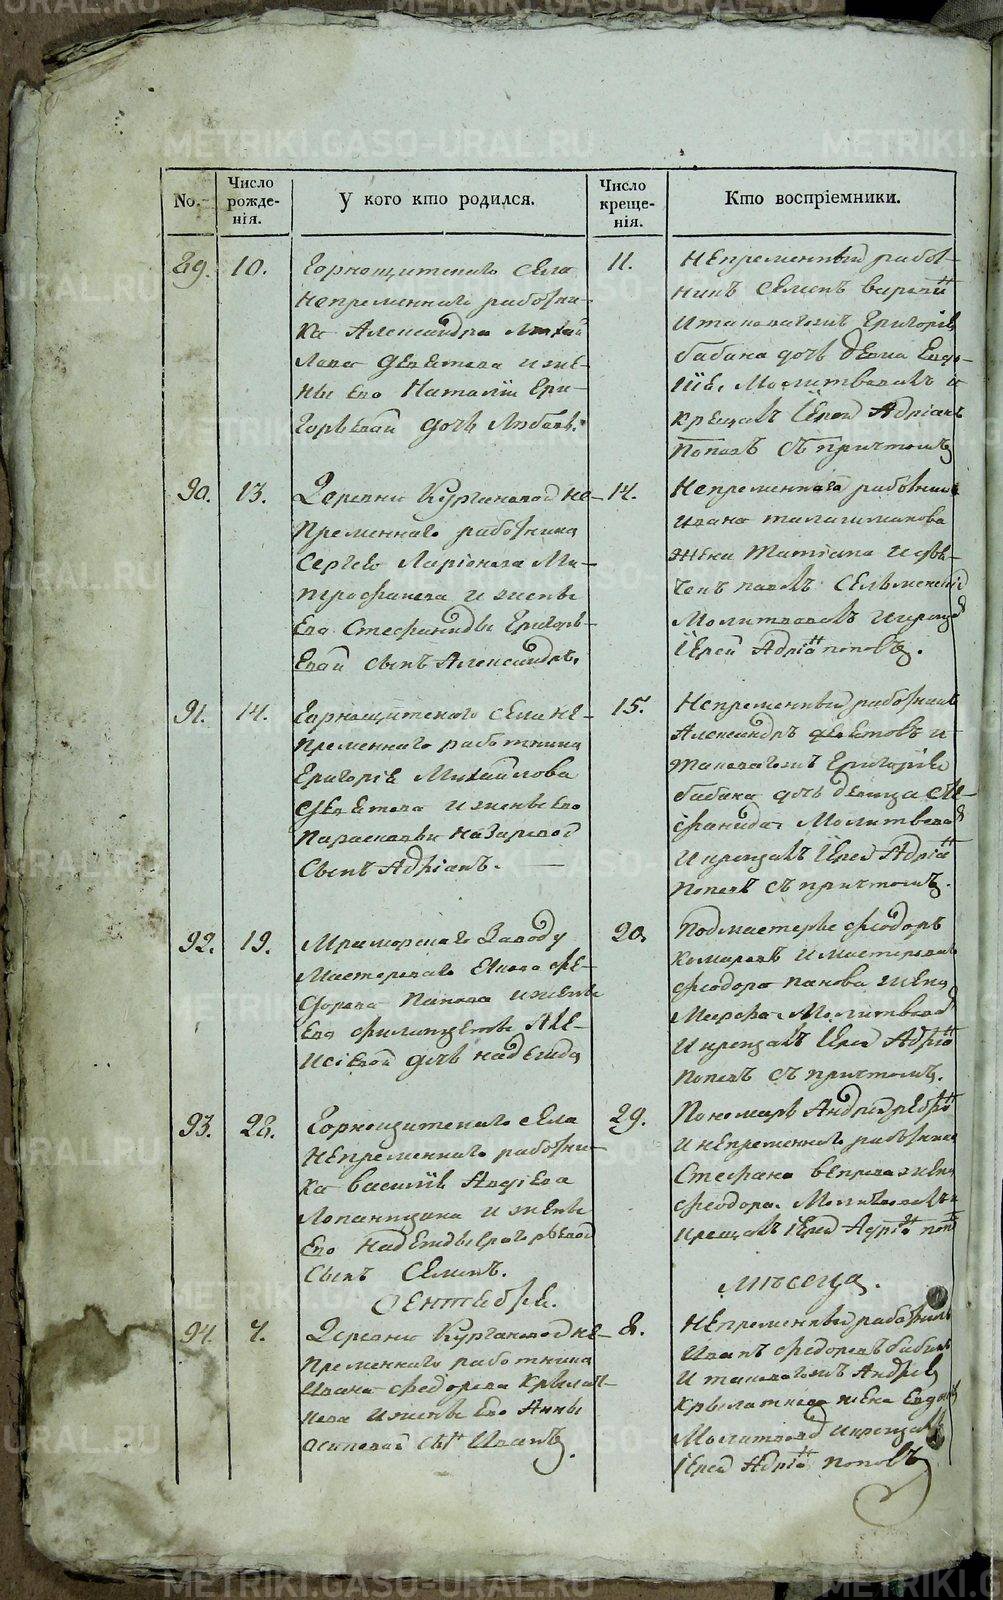 METRIKI.GASO-URAL.RU
No.
Число рожденія.
У кого кто родился.
Число крещенія.
Кто воспріемники.
89.
10.
Горнощитскаго села
непременнаго работни-
ка Александра Михай
лова Девятова и же-
ны его Наталіи Гри-
горьевой дочь Любовь.
11.
Непременный работ-
никъ Семенъ
и таковагожъ Григорія
бабина дочь девица Евдо-
кія. Молитвовалъ и
крещалъ Іерей Адріанъ
Поповъ съ причтомъ
90.
13.
Деревни Кургановой не-
пременнаго работника
Сергея Ларіонова Ми-
трофанова и жены
его Стефаниды Григорь-
евой сынъ Александръ.
14.
Непременнаго работника
Ивана
жена Татіана и
Молитвовалъ и крещал
Іерей Адріанъ Поповъ.
91.
14.
Горнощитскаго села не-
пременнаго работника
Григорія Михайлова
Девятова и жены его
Параскевы Назаровой
Сынъ Адріанъ.
15.
Непременный работникъ
Александръ Девятовъ и
таковагожъ Григорія
бабина дочь девица Сте-
фанида. Молитвовал
и крещалъ Іерей Адріанъ
Поповъ съ причтомъ.
92.
19.
Мраморскаго Заводу
Мастероваго Якова Фе-
дорова Панова и жены
его Филицаты Але-
ксіевой дочь Надежда
20.
Подмастерье Феодоръ
Комаровъ и мастероваго
Феодора Панова жена
Марфа. Молитвовал
и крещалъ Іерей Адріанъ
Поповъ съ причтомъ.
93.
28.
Горнощитскаго села
непременнаго работни-
ка Василія Авдіева
Лопаницына и жены
его Надежды Григорьевой
Сынъ Семенъ.
29.
Пономарь Андрей
и непременнаго работника
Стефана Вепрева жена
Феодора. Молитвовалъ и
крещалъ Іерей Адріанъ Поп
Сентября.
месяца.
94.
7.
Деревни Кургановой не-
пременнаго работника
Ивана Федорова Крылат-
кова и жены его Анны
Осиповой сынъ Иванъ.
8.
Непременный работникъ
Иванъ Федоровъ бабинъ
и таковагожъ Андрея
Крылаткова жена
Молитвовал и крещалъ
Іерей Адріанъ Поповъ